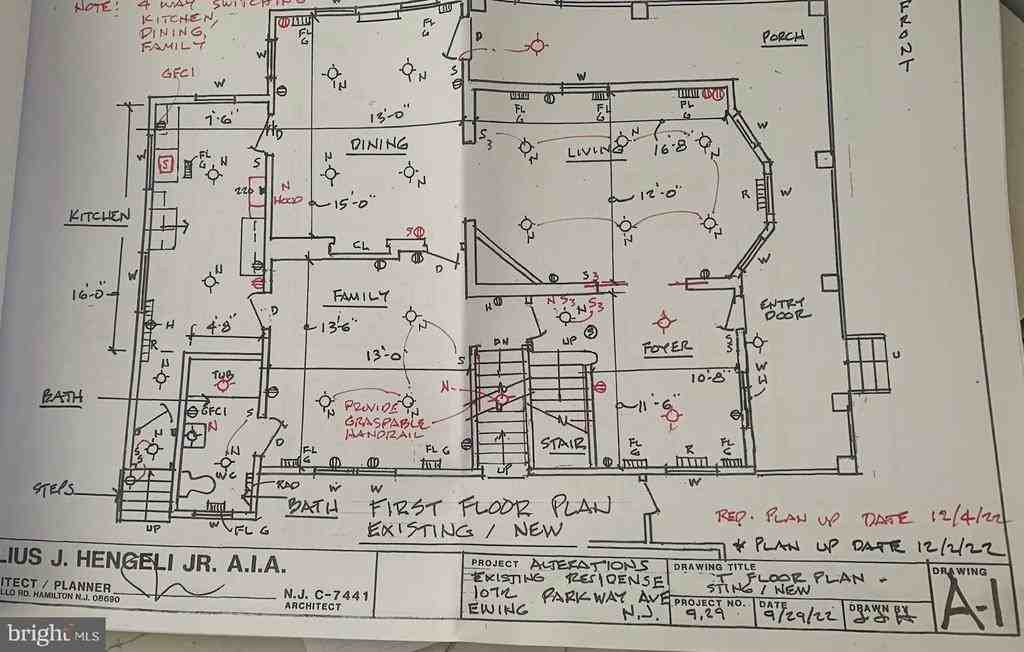 NOTE: 4 WAY SWITCHING
KITCHEN,
DINING,
FAMILY
GFCI
FRONT
PORCH
W
FL
G
FL
G
D
S
N
N
7'-6"
W
13'-0
DINING
H
D
S
FL
G
N
N
N
220
N
HOOD
15'-0"
KITCHEN
16'-0"
W
S
CL
D
FAMILY
13'-6"
13'-0
N
N
4'-8"
D
H
R
N
S3
FL
G
FL
G
FL
G
W
LIVING
16'-8
12'-0"
N
N
N
N
N
N
R
W
W
W
S3
N S3 S3
H
DN
UP
FOYER
ENTRY
DOOR
10'-8"
11'-6"
WH
U
BATH
TUB
GFCI
N
N
WC
S
D
STEPS
UP
RAD
BATH
FL G
W
FL
G
W W
FL
G
N
PROVIDE
GRASPABLE
HANDRAIL
UP
N
STAIR
FL
G
R
W
FL
G
FIRST FLOOR PLAN
EXISTING / NEW
REP. PLAN UP DATE 12/4/22
* PLAN UP DATE 12/2/22
LIUS J. HENGELI JR. A.I.A.
ITECT / PLANNER
LLO RD. HAMILTON N.J. 08690
N.J. C-7441
ARCHITECT
PROJECT ALTERATIONS
EXISTING RESIDENSE
1072 PARKWAY AVE
EWING N.J.
DRAWING TITLE
T FLOOR PLAN -
STING / NEW
PROJECT NO.
9,29
DATE
9/29/22
DRAWN BY
JJH
DRAWING
A-1
bright MLS